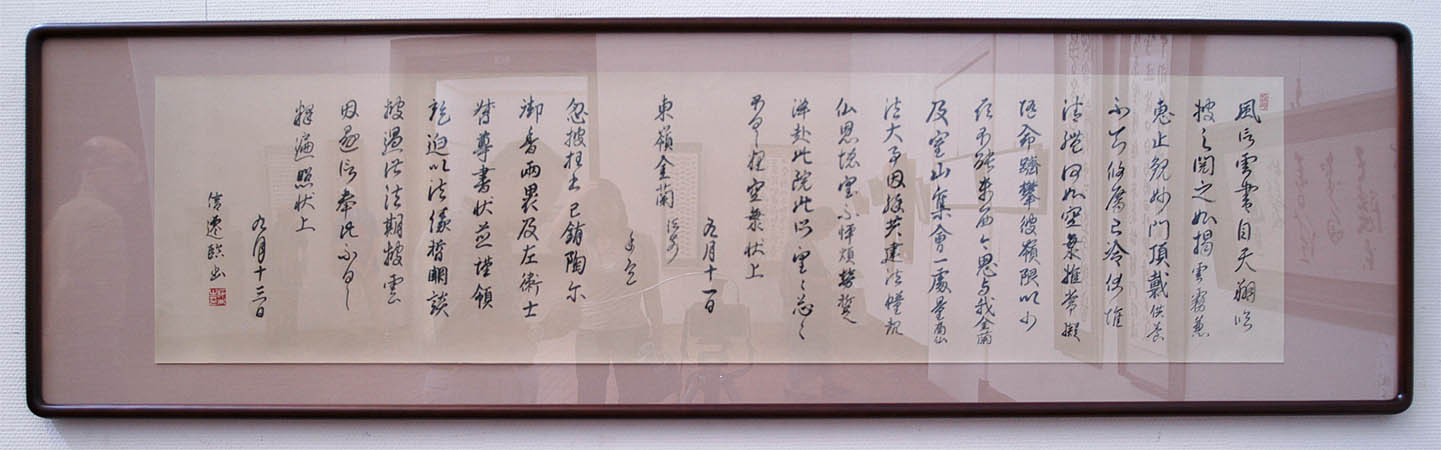 風信雲書自天翔臨
披之閲之如掲雲霧兼
恵止観妙門頂戴供養
不知攸厝已冷伏惟
法體何如空海推常擬
随命躋攀彼嶺限以少
願不能東西今思与我金蘭
及室山集會一處量商仏
法大事因縁共建法幢報
仏恩徳望不憚煩勞蹔
降赴此院此所望々忩々
不具釋空海状上
九月十一日
東嶺金蘭 法前
謹空
忽披枉書已銷陶尓
御香兩裹及左衛士
督尊書状並謹領
訖迫以法縁暫闕談
披過此法期披雲
因還信奉此不具
釋遍照状上
九月十三日